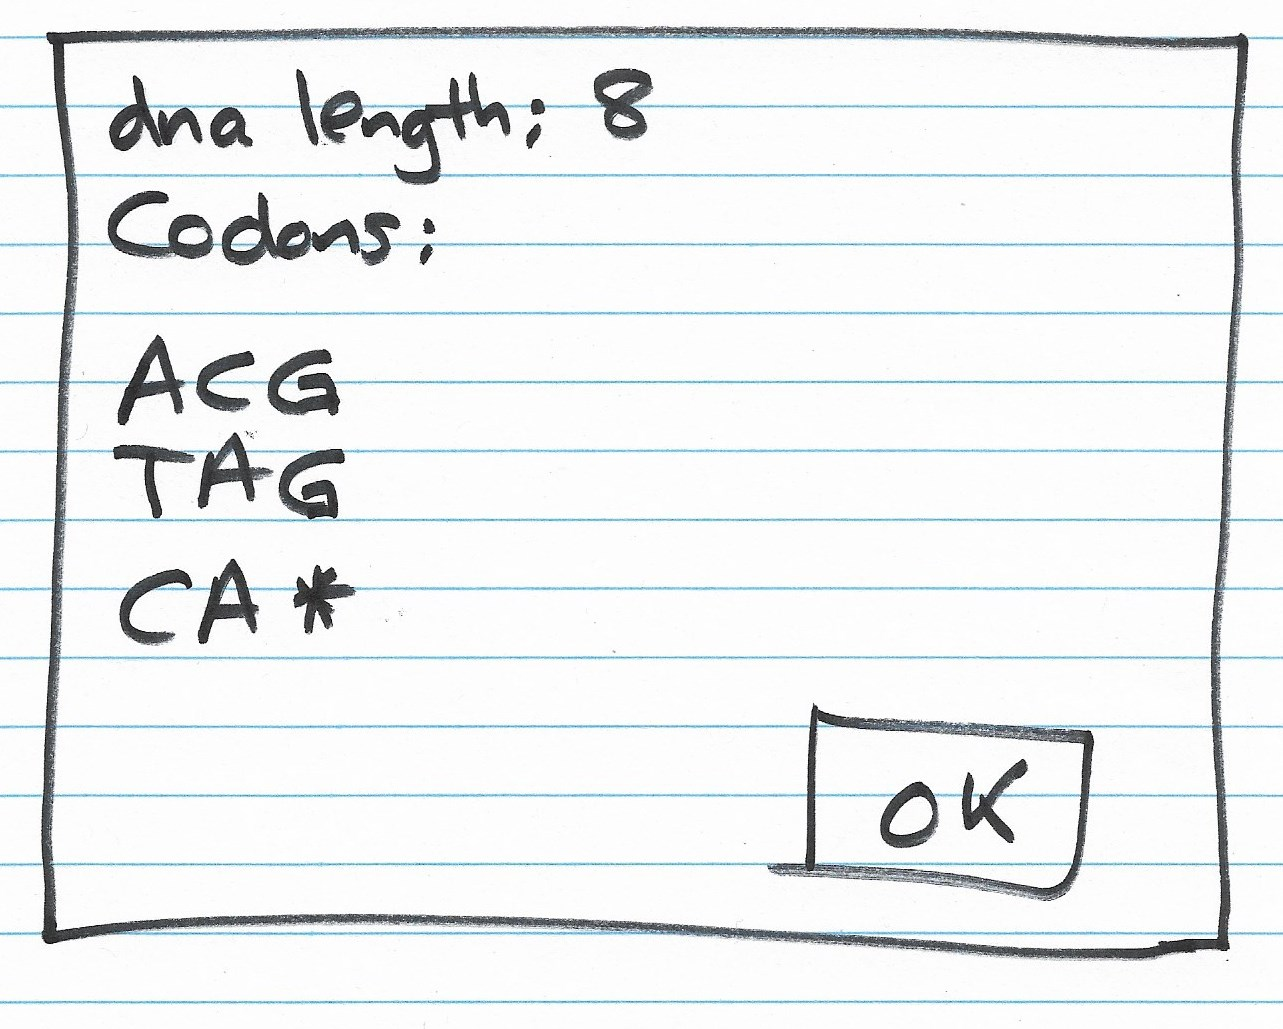 dna length: 8
Codons:
ACG
TAG
CA*
OK